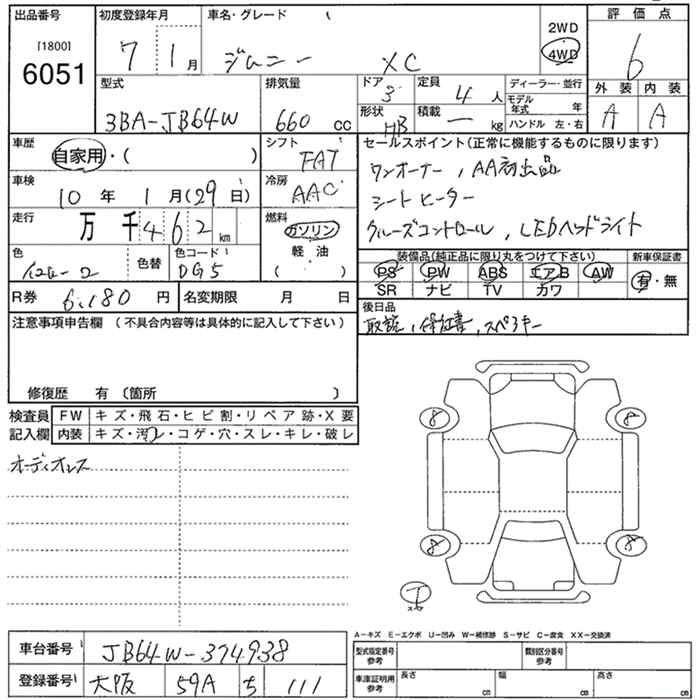 出品番号 初度登録年月 車名・グレード 評価点
[1800] 7 1月 ジムニー XC 2WD 4WD 6
6051
型式 排気量 ドア 3 定員 4 人 ディーラー・並行 外装 内装
3BA-JB64W 660 CC 形状 HB 積載 ー kg モデル年式 年 A A
ハンドル 左・右
車歴 自家用・( ) シフト FAT セールスポイント(正常に機能するものに限ります)
ワンオーナー, AA初出品
車検 10年 1月(29日) 冷房 AAC シートヒーター
走行 万 千 4 6 2 km 燃料 ガソリン クルーズコントロール, LEDヘッドライト
軽油
( )
色 色替 色コード DG5 装備品(純正品に限り丸をつけて下さい) 新車保証書
PS PW ABS エアB AW 有・無
SR ナビ TV カワ
R券 6,180円 名変期限 月 日 後日品
取説, 保証書, スペアキー
注意事項申告欄 (不具合内容等は具体的に記入して下さい)
修復歴 有 〔箇所 〕
検査員 FW キズ・飛石・ヒビ割・リペア跡・X要
記入欄 内装 キズ・汚レ・コゲ・穴・スレ・キレ・破レ
オーディオレス
8 8
8 8
T
A-キズ E-エクボ U-凹み W-補修跡 S-サビ C-腐食 XX-交換済
車台番号 JB64W-374938 型式指定番号 参考 類別区分番号 参考
登録番号 大阪 59A ち 111 車庫証明用 参考 長さ cm 幅 cm 高さ cm